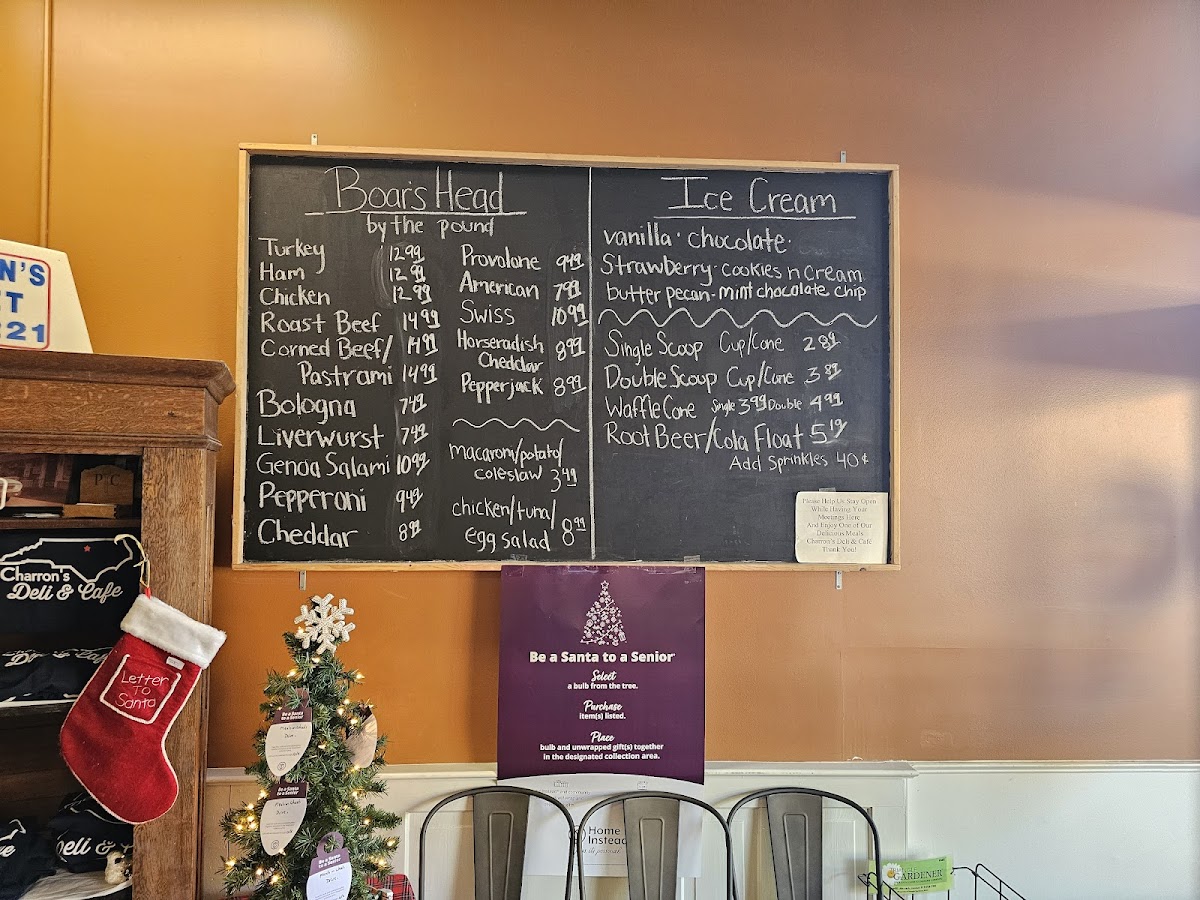 Boar's Head
by the pound
Turkey 12.99
Ham 12.99
Chicken 12.99
Roast Beef 14.99
Corned Beef/ 14.99
Pastrami 14.99
Bologna 7.49
Liverwurst 7.49
Genoa Salami 10.99
Pepperoni 9.49
Cheddar 8.99
Provolone 9.49
American 7.99
Swiss 10.99
Horseradish
Cheddar 8.99
Pepperjack 8.99
macaroni/potato/
coleslaw 3.49
chicken/tuna/
egg salad 8.99
Ice Cream
vanilla · chocolate ·
Strawberry · cookies n cream
butter pecan - mint chocolate chip
Single Scoop Cup/Cone 2.89
Double Scoop Cup/Cone 3.89
Waffle Cone Single 3.99 Double 4.99
Root Beer/Cola Float 5.19
Add Sprinkles 40¢
Please Help Us Stay Open
While Having Your
Meetings Here
And Enjoy One of Our
Delicious Meals
Charron's Deli & Café
Thank You!
N'S
T
221
Charron's
Deli & Cafe
Letter
To
Santa
Be a Santa to a Senior
Select
a bulb from the tree.
Purchase
item(s) listed.
Place
bulb and unwrapped gift(s) together
in the designated collection area.
Home
Instead
Be a Santa
to a Senior
Be a Santa
to a Senior
Be a Santa
to a Senior
GARDENER
eli & Cafe